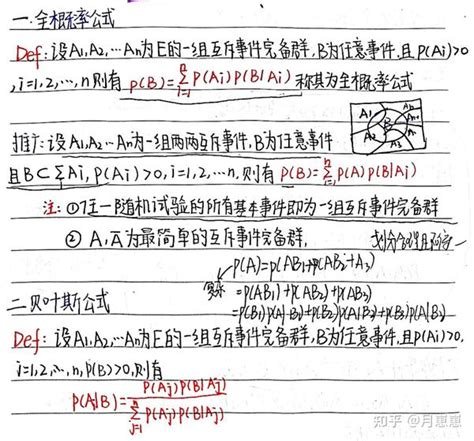 一.全概率公式
Def:设A₁,A₂,…Aₙ为E的一组互斥事件完备群,B为任意事件,且P(Aᵢ)>0
,i=1,2,…,n则有 P(B)=∑ⁿᵢ₌₁P(Aᵢ)P(B|Aᵢ) 称其为全概率公式
A₁ A₂ B A₃
推广:设A₁,A₂…Aₙ为一组两两互斥事件,B为任意事件
且B⊂∑Aᵢ,P(Aᵢ)>0,i=1,2,…n,则有P(B)=∑ⁿᵢ₌₁P(A)P(B|Aᵢ)
注:①任一随机试验的所有基本事件即为一组互斥事件完备群
②A,Ā为最简单的互斥事件完备群,
P(A)=P(AB₁+AB₂+A₃)
=P(AB₁)+P(AB₂)+P(AB₃)
=P(B₁)P(A|B₁)+P(B₂)P(A|B₂)+P(B₃)P(A|B₃)
二.贝叶斯公式
Def:设A₁,A₂,…Aₙ为E的一组互斥事件完备群,B为任意事件,且P(Aᵢ)>0,
i=1,2,…,n,P(B)>0,则有
P(Aⱼ|B)=P(Aⱼ)P(B|Aⱼ)/∑ⁿⱼ₌₁P(Aⱼ)P(B|Aⱼ)
知乎 @月崽崽